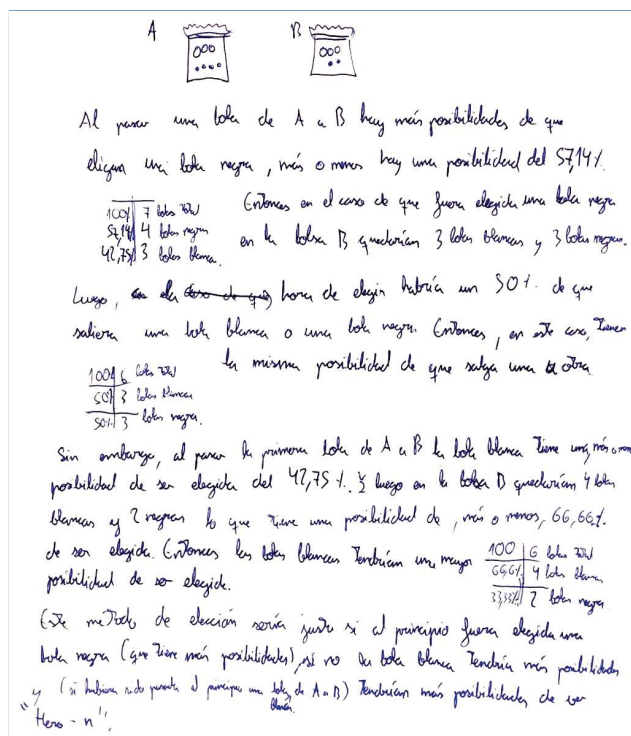 A B
Al pasar una bola de A a B hay más posibilidades de que
eligan una bola negra, más o menos hay una posibilidad del 57,14%.
100% 7 bolas total
57,14% 4 bolas negras
42,75% 3 bolas blanca.
Entonces en el caso de que fuera elegida una bola negra
en la bolsa B quedarían 3 bolas blancas y 3 bolas negras.
Luego, a la hora de elegir habría un 50% de que
saliera una bola blanca o una bola negra. Entonces, en este caso, tienen
la misma posibilidad de que salga una u otra.
100% 6 bolas total
50% 3 bolas blancas
50% 3 bolas negra.
Sin embargo, al pasar la primera bola de A a B la bola blanca tiene una, más o menos
posibilidad de ser elegida del 42,75%. Y luego en la bolsa B quedarían 4 bolas
blancas y 2 negras lo que tiene una posibilidad de, más o menos, 66,66%.
de ser elegida. Entonces las bolas blancas tendrían una mayor
posibilidad de ser elegida.
100 6 bolas total
66,6% 4 bolas blancas
33,33% 2 bolas negra
Este metodo de elección sería justo si al principio fuera elegida una
bola negra (que tiene más posibilidades), si no la bola blanca tendría más posibilidades
y (si hubiera sido pasada al principio una bola blanca de A a B) tendrían más posibilidades de ser
"Hero-n".